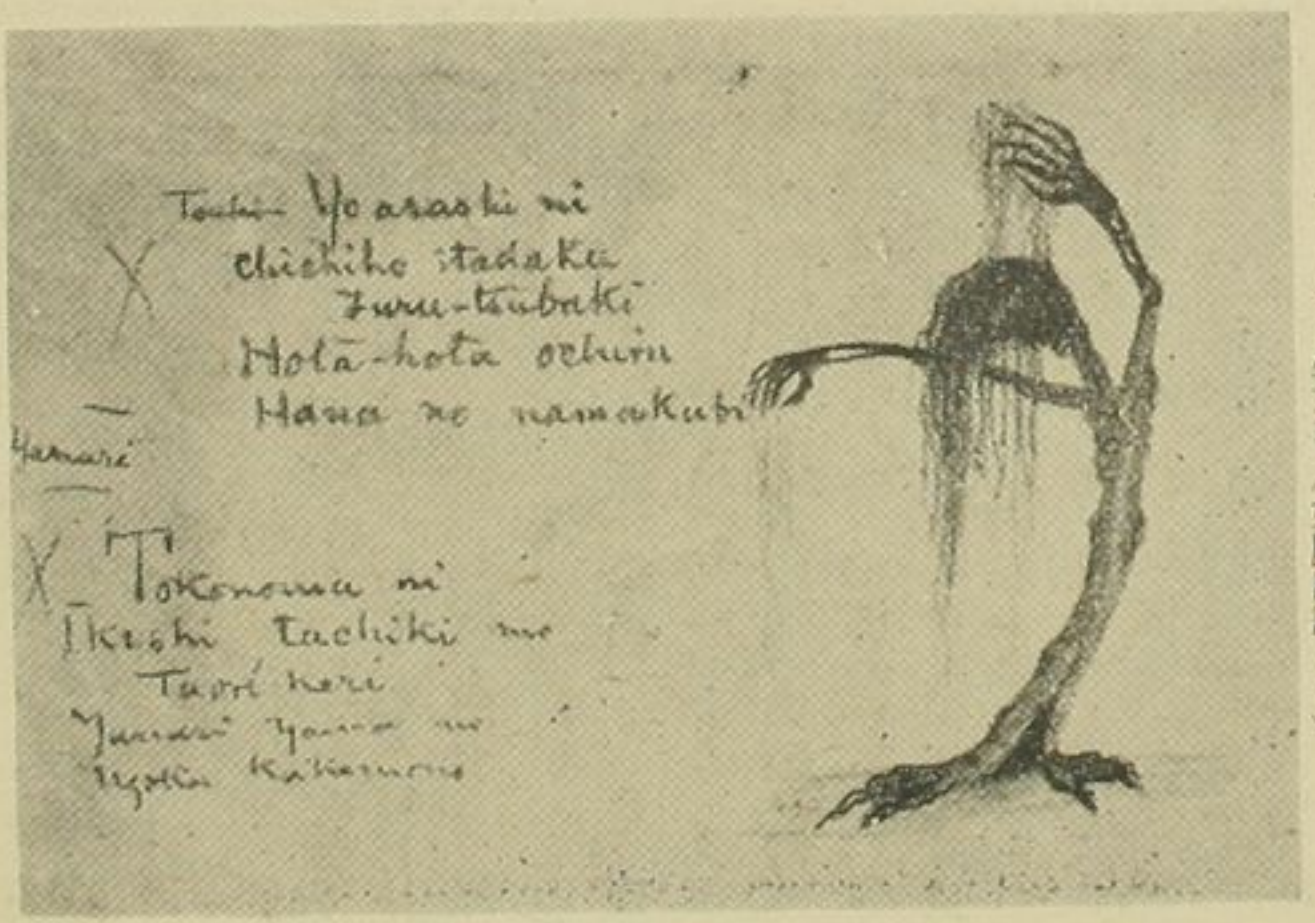 Yo arashi ni
chichiho itadaku
Furu-tsubaki
Hota-hota ochiru
Hana no namakubi
Yanari
Tokonoma ni
Ikeshi tachiki mo
Taore keri
Yanari yama no
Kakemono